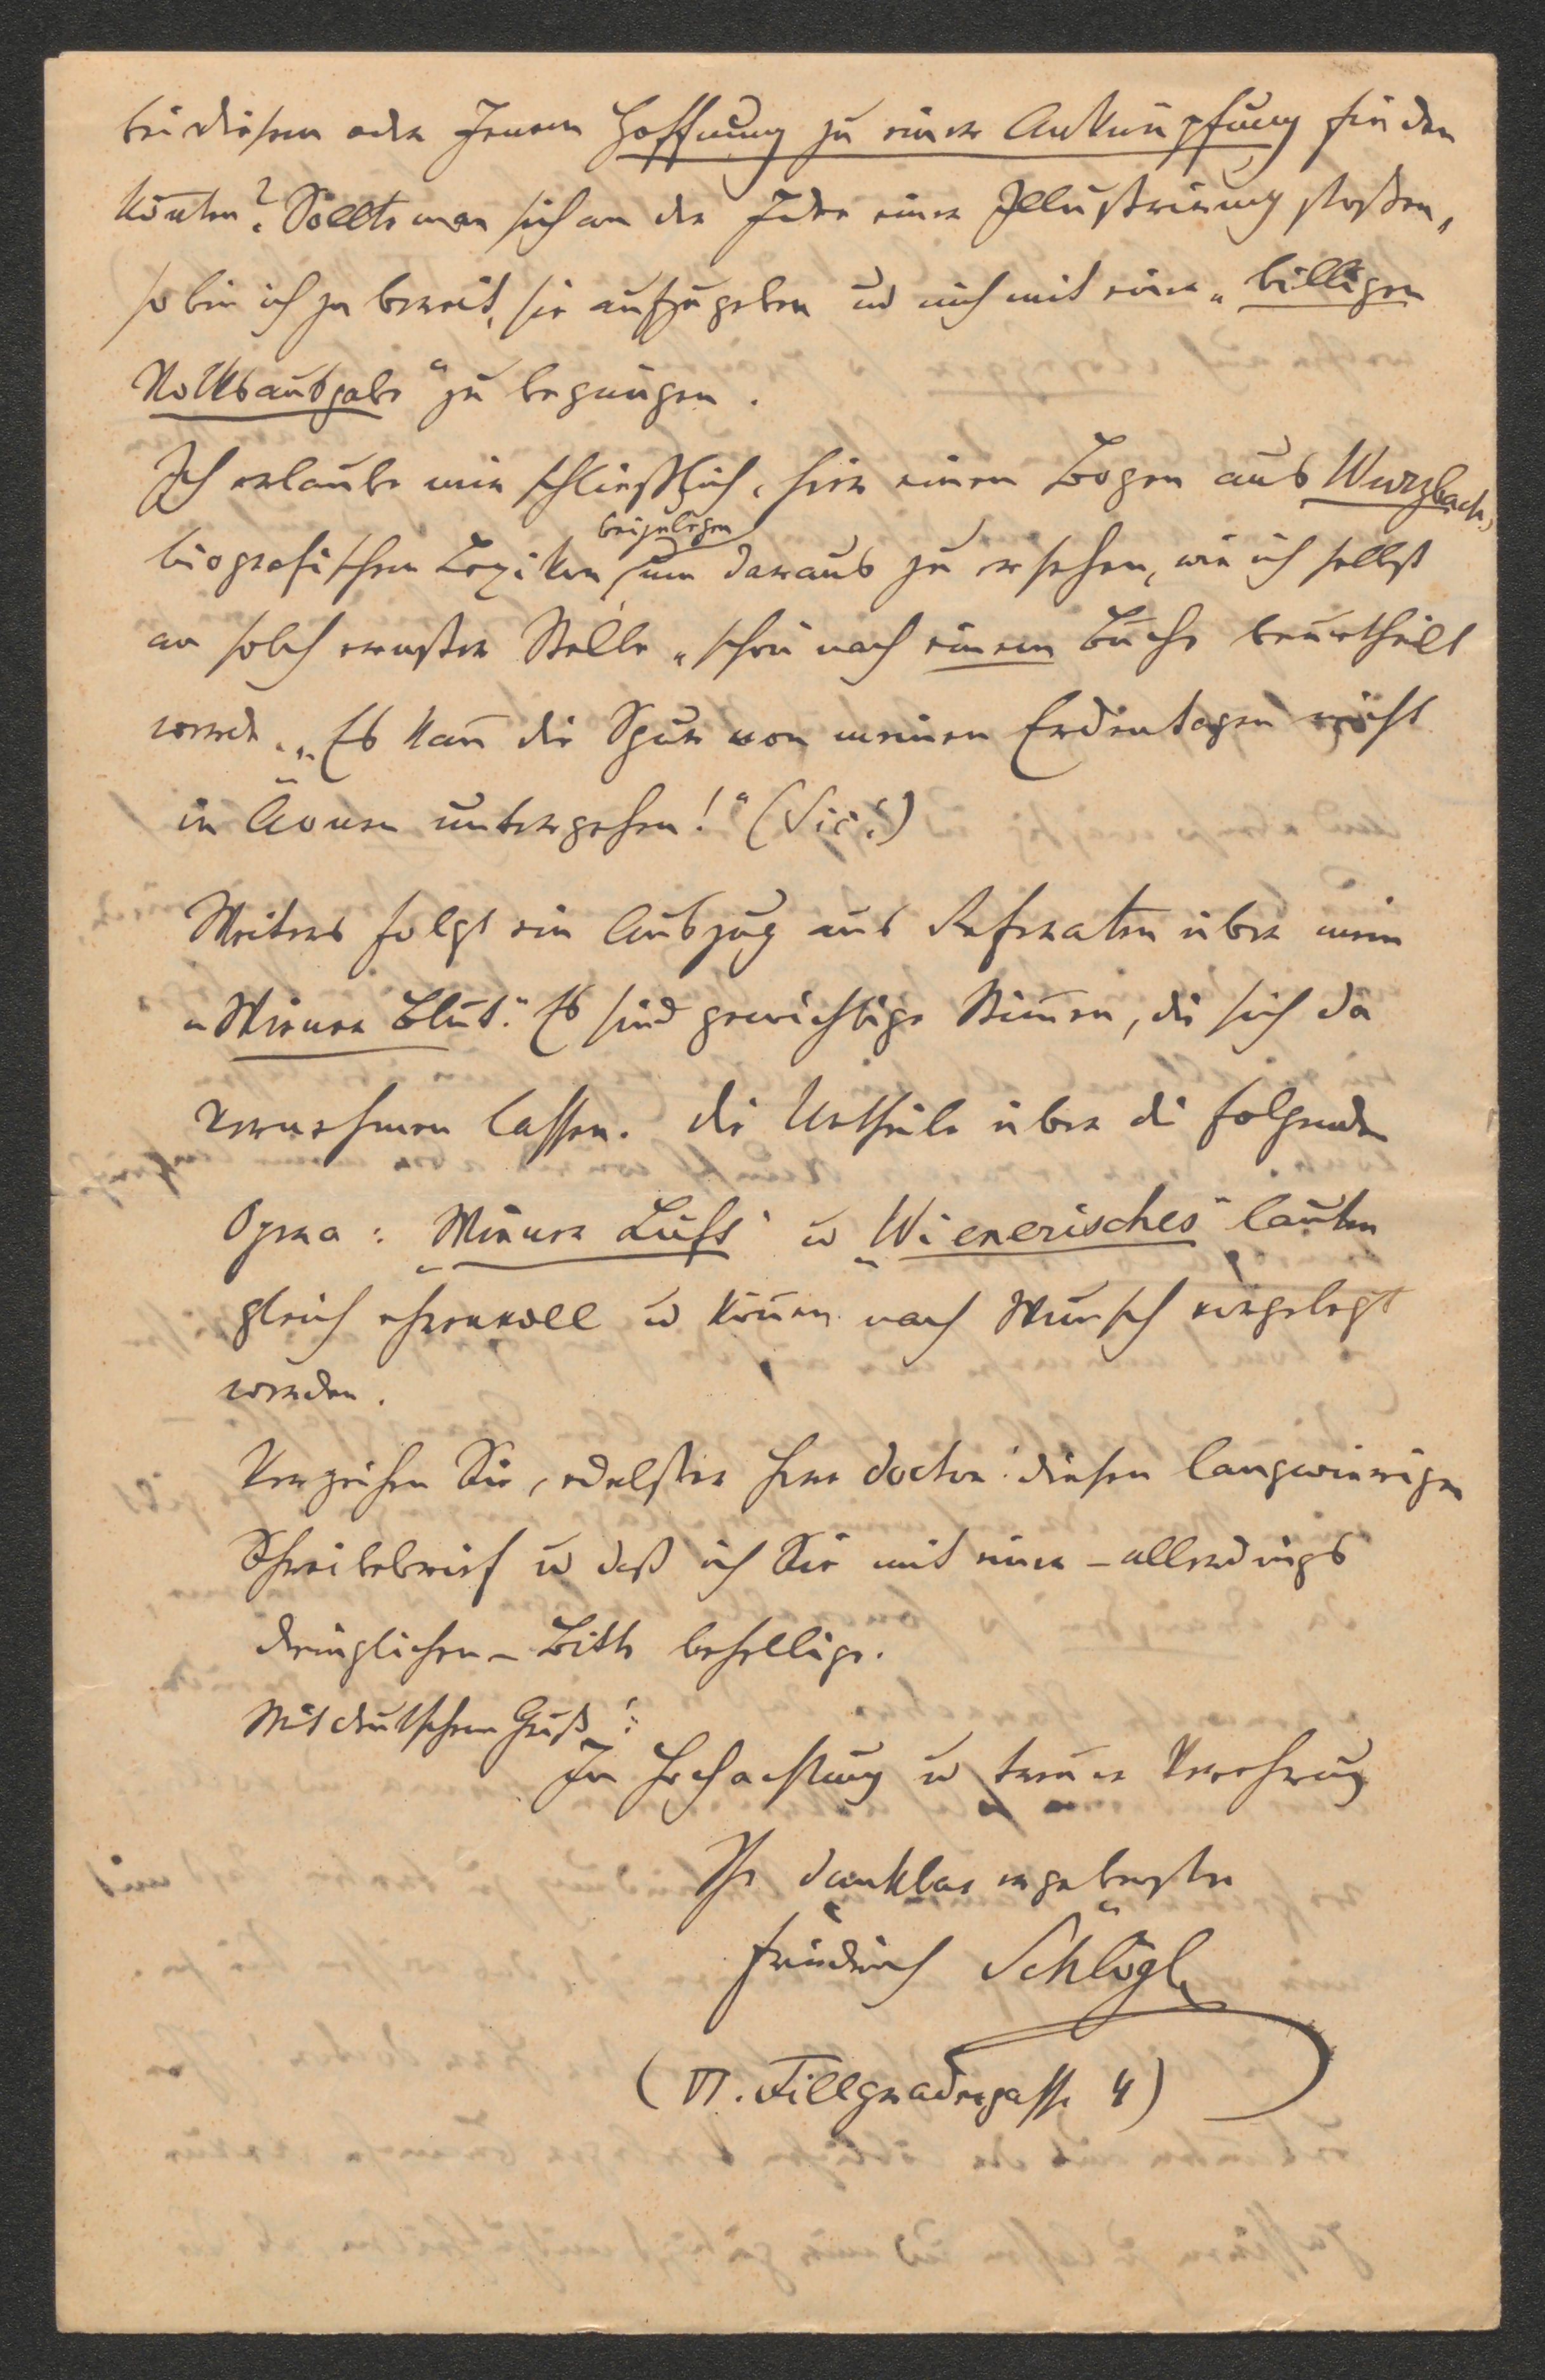 bei diesem oder Jenem Hoffnung zu einer Anknüpfung finden
könnten? Sollte man sich an der Idee einer Illustrirung stoßen,
so bin ich ja bereit, sie aufzugeben und mich mit einer „billigen
Volksausgabe“ zu begnügen.
Ich erlaube mir schließlich, hier einen Bogen aus Wurzbach,
beizulegen
biografischem Lexikon, um daraus zu ersehen, wie ich selbst
an solch ernster Stelle „schon nach einem Buche beurtheilt
werde. „Es kann die Spur von meinen Erdentagen nicht
in Äonen untergehen!“ (Sic!)
Weiters folgt ein Auszug aus Referaten über mein
„Wiener Blut“. Es sind gewichtige Stimmen, die sich da
vernehmen lassen. Die Urtheile über die folgenden
Opera: „Wiener Luft“ u „Wienerisches“ lauten
gleich ehrenvoll u können nach Wunsch vorgelegt
werden.
Verzeihen Sie, edelster Herr Doctor! diesen langwierigen
Schreibebrief u daß ich Sie mit einer – allerdings
dringlichen – Bitte behellige.
Mit deutschem Gruß!
In Hochachtung u treuer Verehrung
Ihr dankbar ergebenster
Friedrich Schlögl
(VI. Fillgradergasse 4)